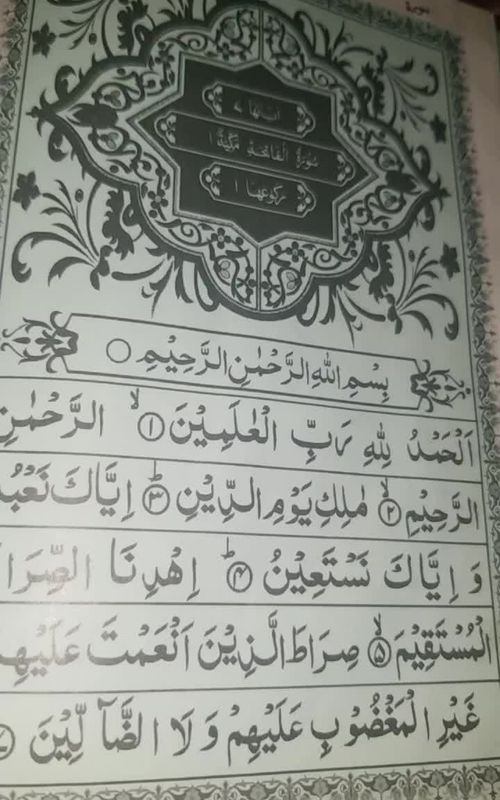 سورة
اٰيٰتُهَا ٧
سُوْرَةُ الْفَاتِحَةِ مَكِّيَّةٌ ١
رُكُوْعُهَا ١
بِسْمِ اللّٰهِ الرَّحْمٰنِ الرَّحِيْمِ ○
اَلْحَمْدُ لِلّٰهِ رَبِّ الْعٰلَمِيْنَ ۙ﴿۱﴾ الرَّحْمٰنِ
الرَّحِيْمِ ۙ﴿۲﴾ مٰلِكِ يَوْمِ الدِّيْنِ ؕ﴿۳﴾ اِيَّاكَ نَعْبُ
وَ اِيَّاكَ نَسْتَعِيْنُ ؕ﴿۴﴾ اِهْدِنَا الصِّرَا
الْمُسْتَقِيْمَ ۙ﴿۵﴾ صِرَاطَ الَّذِيْنَ اَنْعَمْتَ عَلَيْهِ
غَيْرِ الْمَغْضُوْبِ عَلَيْهِمْ وَ لَا الضَّآلِّيْنَ ﴿۷﴾